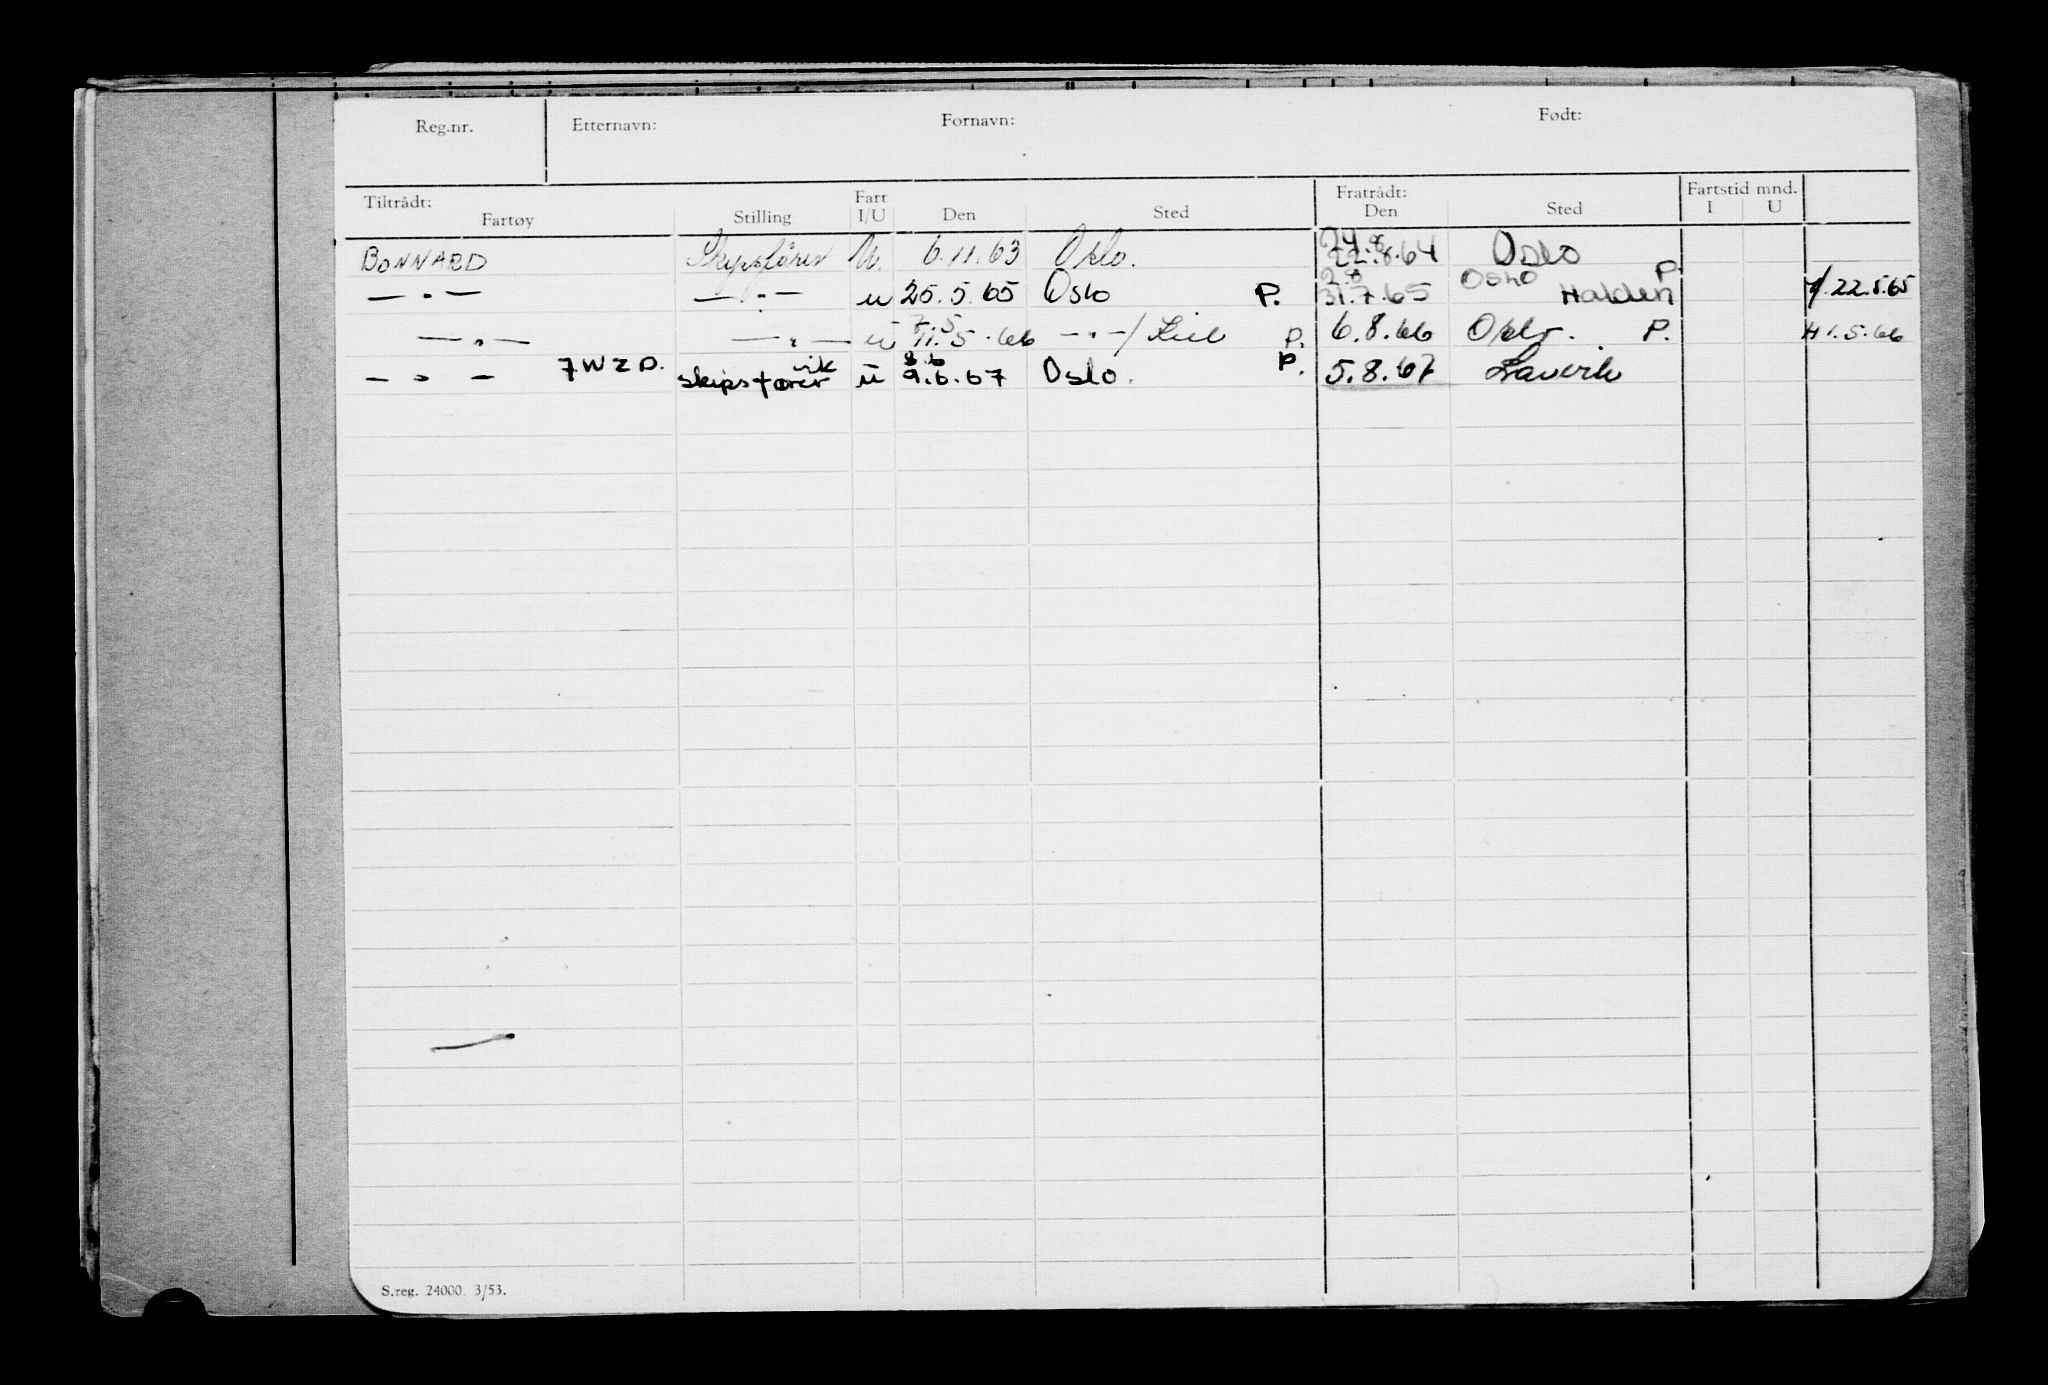 Reg.nr. Etternavn: Fornavn: Født:
Tiltrådt: Fartøy Stilling Fart I/U Den Sted Fratrådt: Den Sted Fartstid mnd. I U
BONNARD Skipsfører U. 6.11.63 Oslo. 24.8 22.8.64 Oslo
— " — — " — u 25.5.65 Oslo P. 2.8 31.7.65 Oslo Halden P. 22.5.65
— " — — " — u 7.5 11.5.66 — " — / P. 6.8.66 Oslo. P. 1.5.66
— " — JWZD. skipsfører vik u 8.6 9.6.67 Oslo. P. 5.8.67 Larvik
S.reg. 24000 3/53.